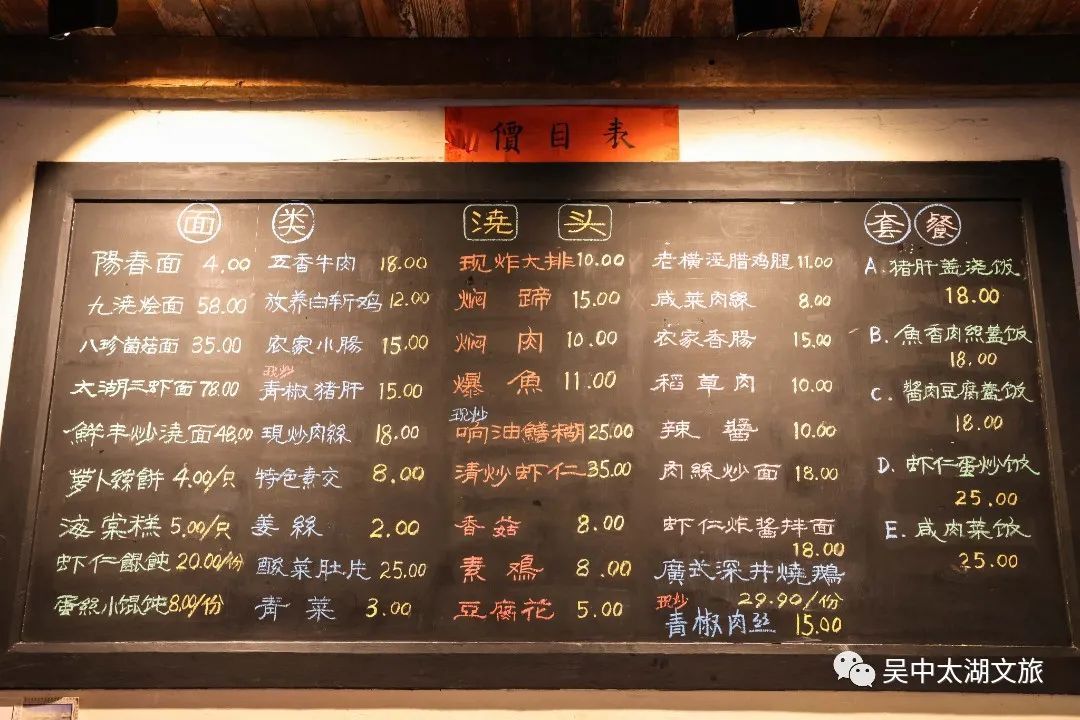 價目表
面类
浇头
套餐
陽春面 4.00
九浇烩面 58.00
八珍菌菇面 35.00
太湖三虾面 78.00
鮮丰炒澆面 48.00
萝卜絲餅 4.00/只
海棠糕 5.00/只
虾仁餛飩 20.00/份
蛋丝小馄饨 8.00/份
五香牛肉 18.00
放养白斩鸡 12.00
农家小腸 15.00
现炒
青椒猪肝 15.00
現炒肉絲 18.00
特色素交 8.00
姜絲 2.00
酸菜肚片 25.00
青菜 3.00
现炸大排 10.00
焖蹄 15.00
焖肉 10.00
爆魚 11.00
现炒
响油鱔糊 25.00
清炒虾仁 35.00
香菇 8.00
素鳮 8.00
豆腐花 5.00
老横泾腊鸡腿 11.00
咸菜肉絲 8.00
农家香腸 15.00
稻草肉 10.00
辣醬 10.00
肉絲炒面 18.00
虾仁炸醬拌面
18.00
廣式深井燒鵝
29.90/份
现炒
青椒肉丝 15.00
A. 猪肝盖浇饭
18.00
B. 魚香肉丝盖饭
18.00
C. 醬肉豆腐蓋饭
18.00
D. 虾仁蛋炒饭
25.00
E. 咸肉菜饭
25.00
吴中太湖文旅